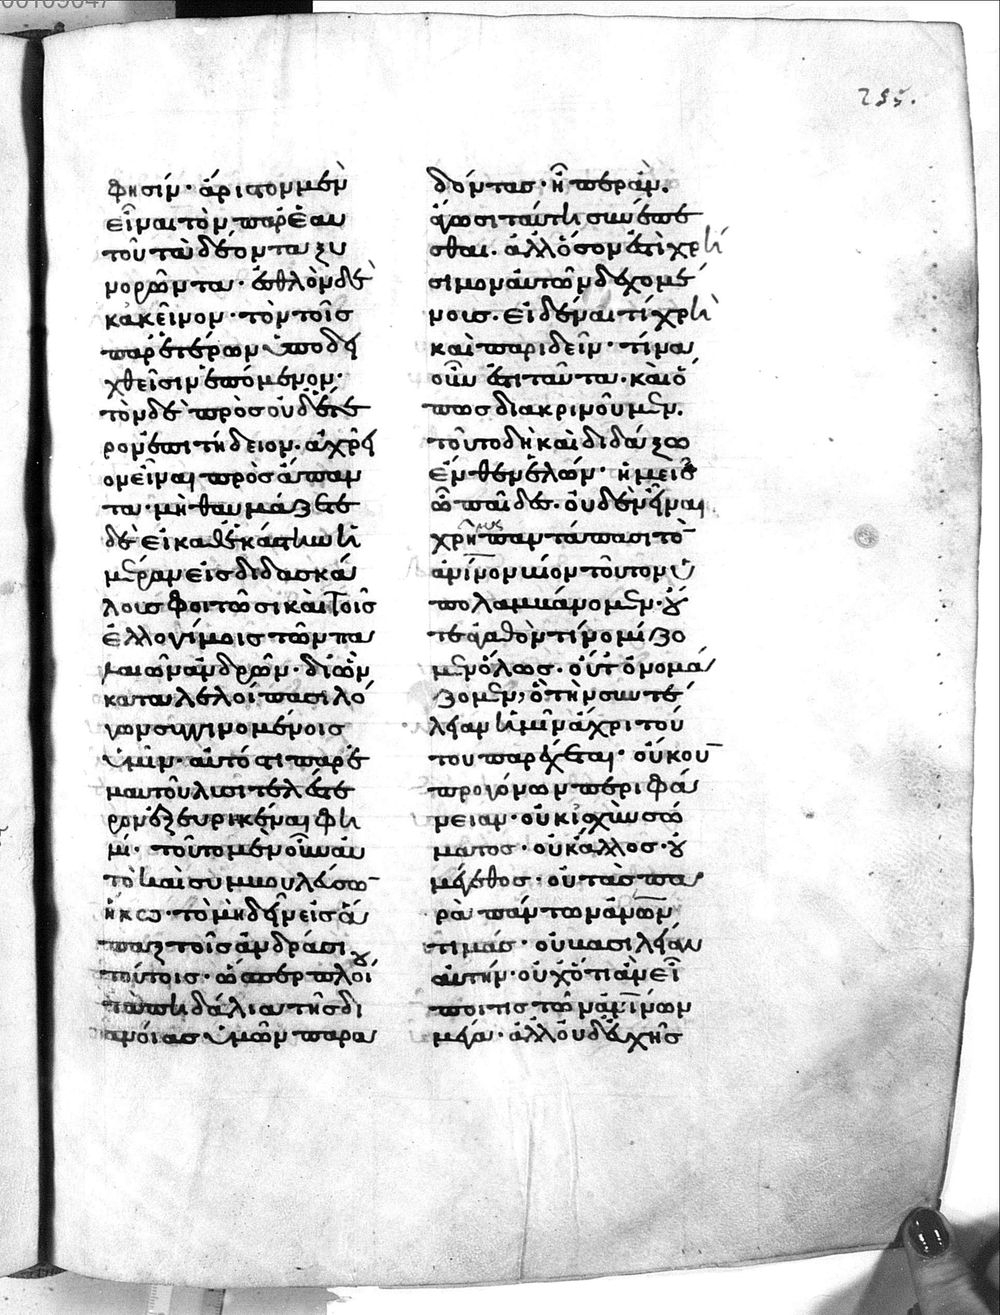 00109047
255.
φησίν· ἄριστον μὲν
εἶναι τὸν παρ' ἑαυ
τοῦ τὰ δέοντα ξυ
νορῶντα· ἐσθλὸν δὲ
κἀκεῖνον· τὸν τοῖς
παρ' ἑτέρων ὑποδει
χθεῖσιν ἑπόμενον·
τὸν δὲ πρὸς οὐδέτε
ρον ἐπιτήδειον· ἀχρεῖ
ον εἶναι πρὸς ἅπαν
τα· μὴ θαυμάζετε
δὲ εἰ καθ' ἑκάστην ἡ
μέραν εἰς διδασκά
λους φοιτῶσι καὶ τοῖς
ἐλλογίμοις τῶν πα
λαιῶν ἀνδρῶν· δι' ὧν
καταλελοίπασι λό
γων συγγινομένοις
ὑμῖν· αὐτός τι παρ' ἐ
μαυτοῦ λυσιτελέστε
ρον ἐξευρηκέναι φη
μί· τοῦτο μὲν οὖν αὐ
τὸ καὶ συμβουλεύσων
ἥκω· τὸ μὴ δεῖν εἰς ἅ
παξ τοῖς ἀνδράσι
τούτοις· ὥσπερ πλοί
ου τὰ πηδάλια τῆς δι
ανοίας ὑμῶν παρα
δόντας· ᾗ περ ἂν
ἄγωσι ταύτῃ συνέπε
σθαι· ἀλλ' ὅσον ἐστὶ χρή
σιμον αὐτῶν δεχομέ
νους· εἰδέναι τί χρὴ
καὶ παριδεῖν· τίνα
οὖν ἐστι ταῦτα· καὶ ὅ
πως διακρινοῦμεν·
τοῦτο δὴ καὶ διδάξω
ἔνθεν ἑλών· ἡμεῖς
ὦ παῖδες· οὐδὲν εἶναι
χρῆμα παντάπασι τὸν
ἀνίνον βίον τοῦτον ὑ
πολαμβάνομεν· οὔ
τε ἀγαθόν τι νομίζο
μεν ὅλως· οὔτ' ὀνομά
ζομεν, ὃ τὴν συντέ
λειαν ἡμῖν ἄχρι τού
του παρέχεται· οὔκουν
προγόνων περιφά
νειαν· οὐκ ἰσχὺν σώ
ματος· οὐ κάλλος· οὐ
μέγεθος· οὐ τὰς πα
ρὰ πάντων ἀνων
τιμάς· οὐ βασιλείαν
αὐτήν· οὐχ ὅ τι ἂν εἴ
ποι τις τῶν ἀνίνων
μέγα· ἀλλ' οὐδὲ εὐχῆς